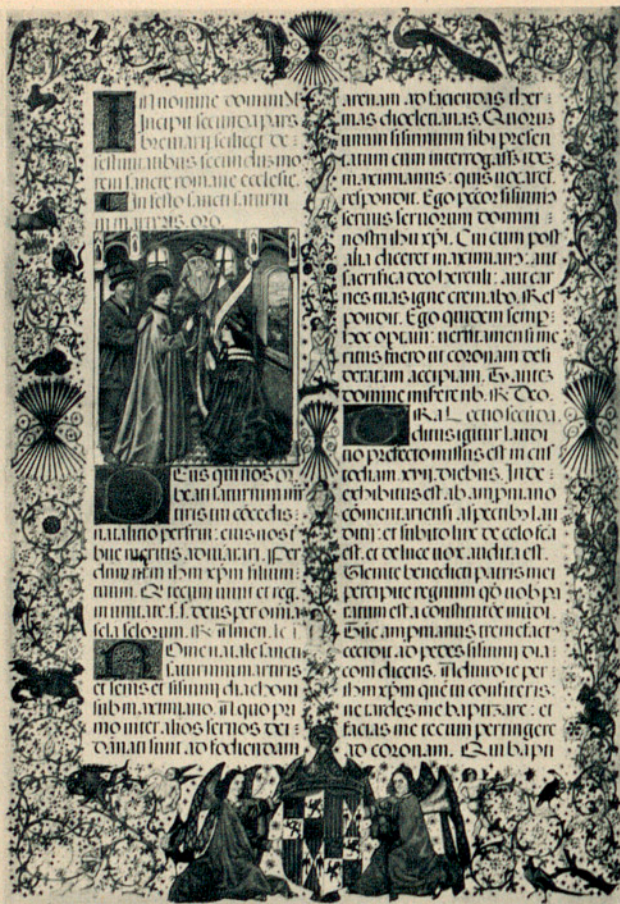 In nomine domini
Incipit secunda pars
breviarii scilicet de
festivitatibus secundus mo
rem sancte romane ecclesie.
In festo sancti saturni
ni martiris. oro
Deus qui nos
beati saturnini
tiris tui cōcedis
natalitio perfrui: eius nos
meritis adiuvari. Per
dnm nrm ihm xpm filium
tuum. Qi tecum vivit et reg.
in unitate. s. s. deus per omīa
scla seclorum. R Amen.
Nome natale sancti
saturnini martiris
et senis et sisinni diachoni
sub maximiano. Il quo pri
mo inter alios servos dei
danati sunt ad fodiendam
arenam ad faciendas ther
mas dioclenanas. Quorum
unum sisinnium sibi presen
tatum cum interrogasset
maximianus: quis vocaret.
respondit. Ego peccor sisinnius
servus servorum domini
nostri ihu xpi. Cui cum post
alia diceret maximian: aut
sacrifica deo herculi: aut car
nes tuas igne cremabo. Res
pondit. Ego quidem semp
hoc optavi: veritamen si me
ritus fuero ut coronam desi
deratam accipiam. Tu autez
domine miserere nob. R Deo.
R. a L Lectio secūda.
ditus igitur laudi
no prefecto missus est in cus
todiam. xvii. diebus. Inde
exhibitus est ab ampiniano
cōmentariensi aspectibus lau
dicii: et subito lux de celo fca
est. et de luce vox audita est.
Venite benedicti patris mei
percipite regnum qd nob pa
ratum est a constitutōe mūdi.
Tūc ampinianus tremefact
cecidit ad pedes sisinni dia
coni dicens. Adiuro te per
ihm xpm quē tu confiteris:
ne tardes me baptizare: et
facias me tecum pertingere
ad coronam. Qui bapti